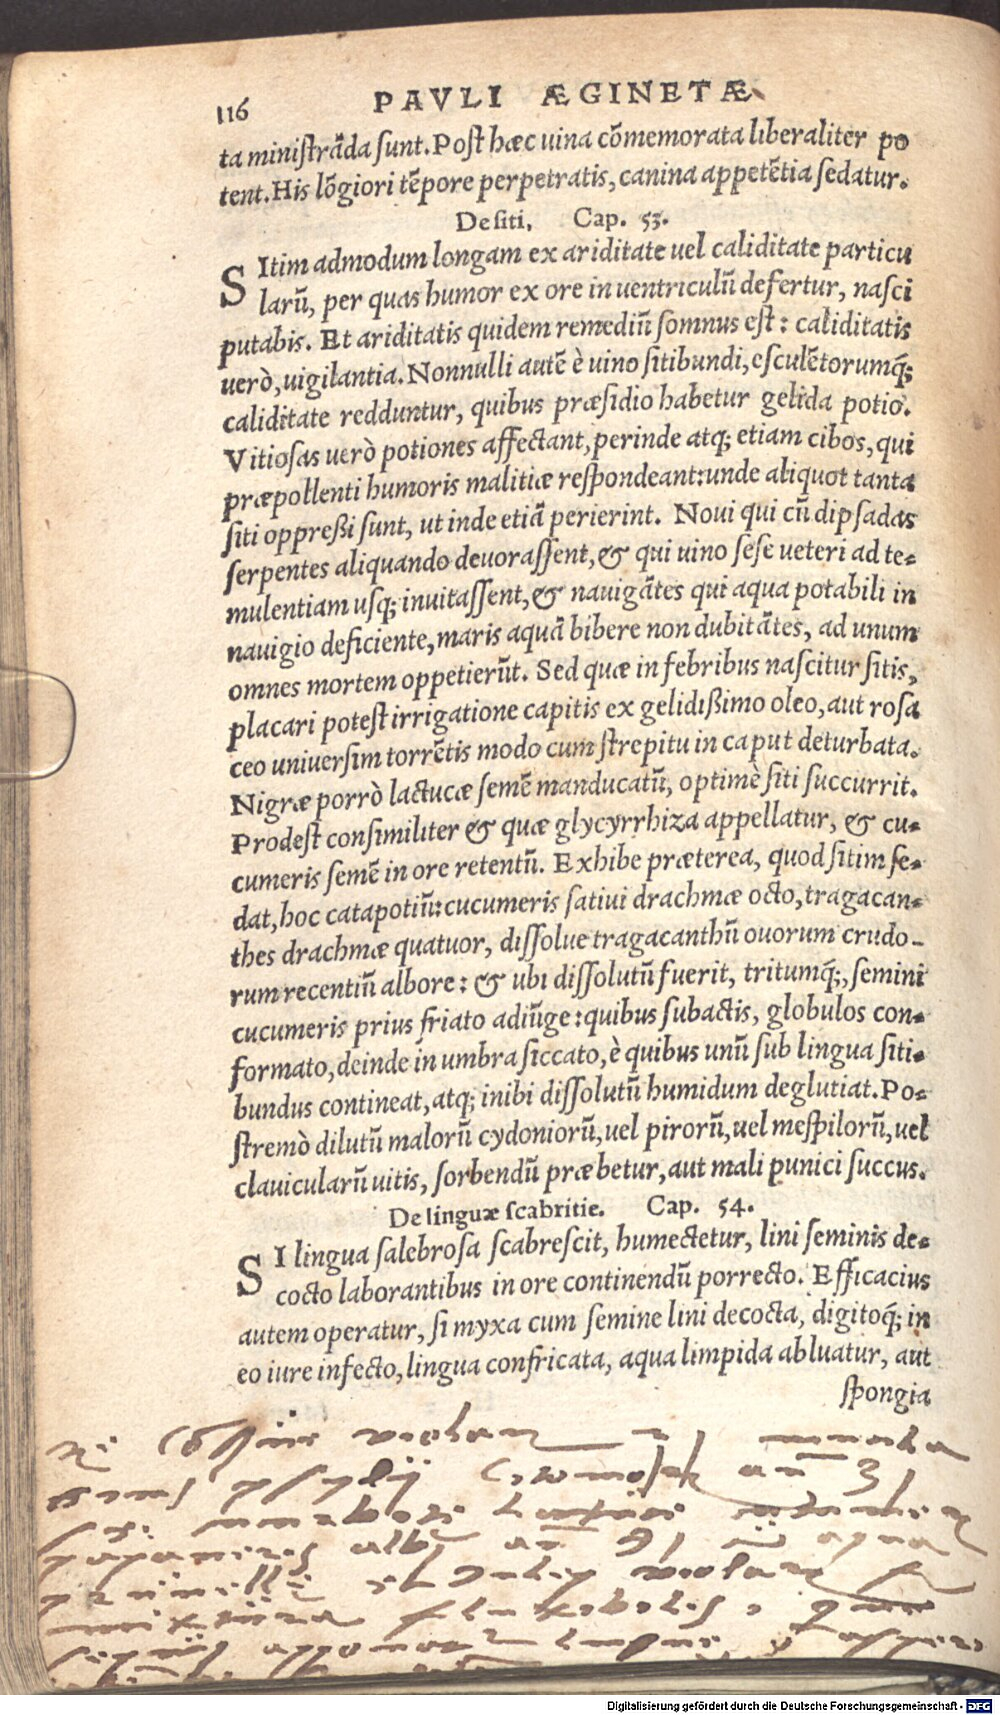 116 PAVLI ÆGINETÆ
ta ministrãda sunt. Post hæc uina cõmemorata liberaliter po
tent. His lõgiori tẽpore perpetratis, canina appetẽtia sedatur.
De siti, Cap. 53.
SItim admodum longam ex ariditate uel caliditate particu
larũ, per quas humor ex ore in uentriculũ defertur, nasci
putabis. Et ariditatis quidem remediũ somnus est: caliditatis
uerò, uigilantia. Nonnulli autẽ è uino sitibundi, esculẽtorumq́;
caliditate redduntur, quibus præsidio habetur gelida potio.
Vitiosas uerò potiones affectant, perinde atq; etiam cibos, qui
præpollenti humoris malitiæ respondeant: unde aliquot tanta
siti oppreßi sunt, ut inde etiã perierint. Noui qui cũ dipsadas
serpentes aliquando deuorassent, & qui uino sese ueteri ad te-
mulentiam usq; inuitassent, & nauigãtes qui aqua potabili in
nauigio deficiente, maris aquã bibere non dubitãtes, ad unum
omnes mortem oppetierũt. Sed quæ in febribus nascitur sitis,
placari potest irrigatione capitis ex gelidißimo oleo, aut rosa
ceo uniuersim torrẽtis modo cum strepitu in caput deturbata.
Nigræ porrò lactucæ semẽ manducatũ, optimè siti succurrit.
Prodest consimiliter & quæ glycyrrhiza appellatur, & cu-
cumeris semẽ in ore retentũ. Exhibe præterea, quod sitim se-
dat, hoc catapotiũ: cucumeris satiui drachmæ octo, tragacan-
thes drachmæ quatuor, dissolue tragacanthũ ouorum crudo-
rum recentiũ albore: & ubi dissolutũ fuerit, tritumq́;, semini
cucumeris prius friato adiũge: quibus subactis, globulos con-
formato, deinde in umbra siccato, è quibus unũ sub lingua siti-
bundus contineat, atq; inibi dissolutũ humidum deglutiat. Po-
stremò dilutũ malorũ cydoniorũ, uel pirorũ, uel mespilorũ, uel
clauicularũ uitis, sorbendũ præbetur, aut mali punici succus.
De linguæ scabritie. Cap. 54.
SI lingua salebrosa scabrescit, humectetur, lini seminis de-
cocto laborantibus in ore continendũ porrecto. Efficacius
autem operatur, si myxa cum semine lini decocta, digitoq́; in
eo iure infecto, lingua confricata, aqua limpida abluatur, aut
spongia
violar
psylij
papaueris albi
prunelle violar
mixtura
Digitalisierung gefördert durch die Deutsche Forschungsgemeinschaft - DFG